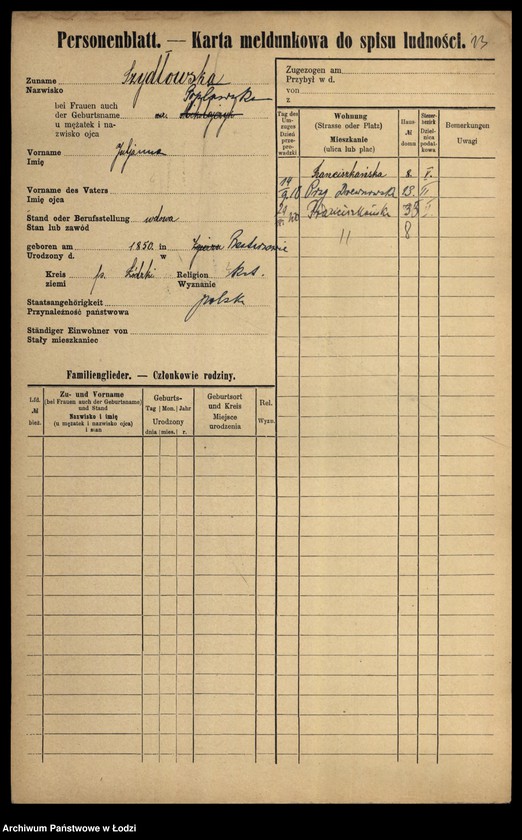 Personenblatt. — Karta meldunkowa do spisu ludności. 13
Zuname Szydłowska
Nazwisko
bei Frauen auch
der Geburtsname
u mężatek i na-
zwisko ojca
Vorname Juljanna
Imię
Vorname des Vaters
Imię ojca
Stand oder Berufsstellung wdowa
Stan lub zawód
geboren am 1850. in
Urodzony d. w
Kreis p. Łódzki Religion
ziemi Wyznanie
Staatsangehörigkeit polsk
Przynależność państwowa
Ständiger Einwohner von
Stały mieszkaniec
Zugezogen am
Przybył w d.
von
z
Tag des Um-
zuges
Dzień
prze-
prowadzki
Wohnung
(Strasse oder Platz)
Mieszkanie
(ulica lub plac)
Haus-
№
domu
Steuer-
bezirk
Dziel-
nica
podat-
kowa
Bemerkungen
Uwagi
Franciszkańska 8. I.
Przy Drewnowska 23. II
Franciszkańska 35 I.
11 8
Familienglieder. — Członkowie rodziny.
Lfd.
№
bież.
Zu- und Vorname
(bei Frauen auch der Geburtsname)
und Stand
Nazwisko i imię
(u mężatek i nazwisko ojca)
i stan
Geburts-
Tag | Mon. | Jahr
Urodzony
dnia | mies. | r.
Geburtsort
und Kreis
Miejsce
urodzenia
Rel.
Wyzn.
Archiwum Państwowe w Łodzi